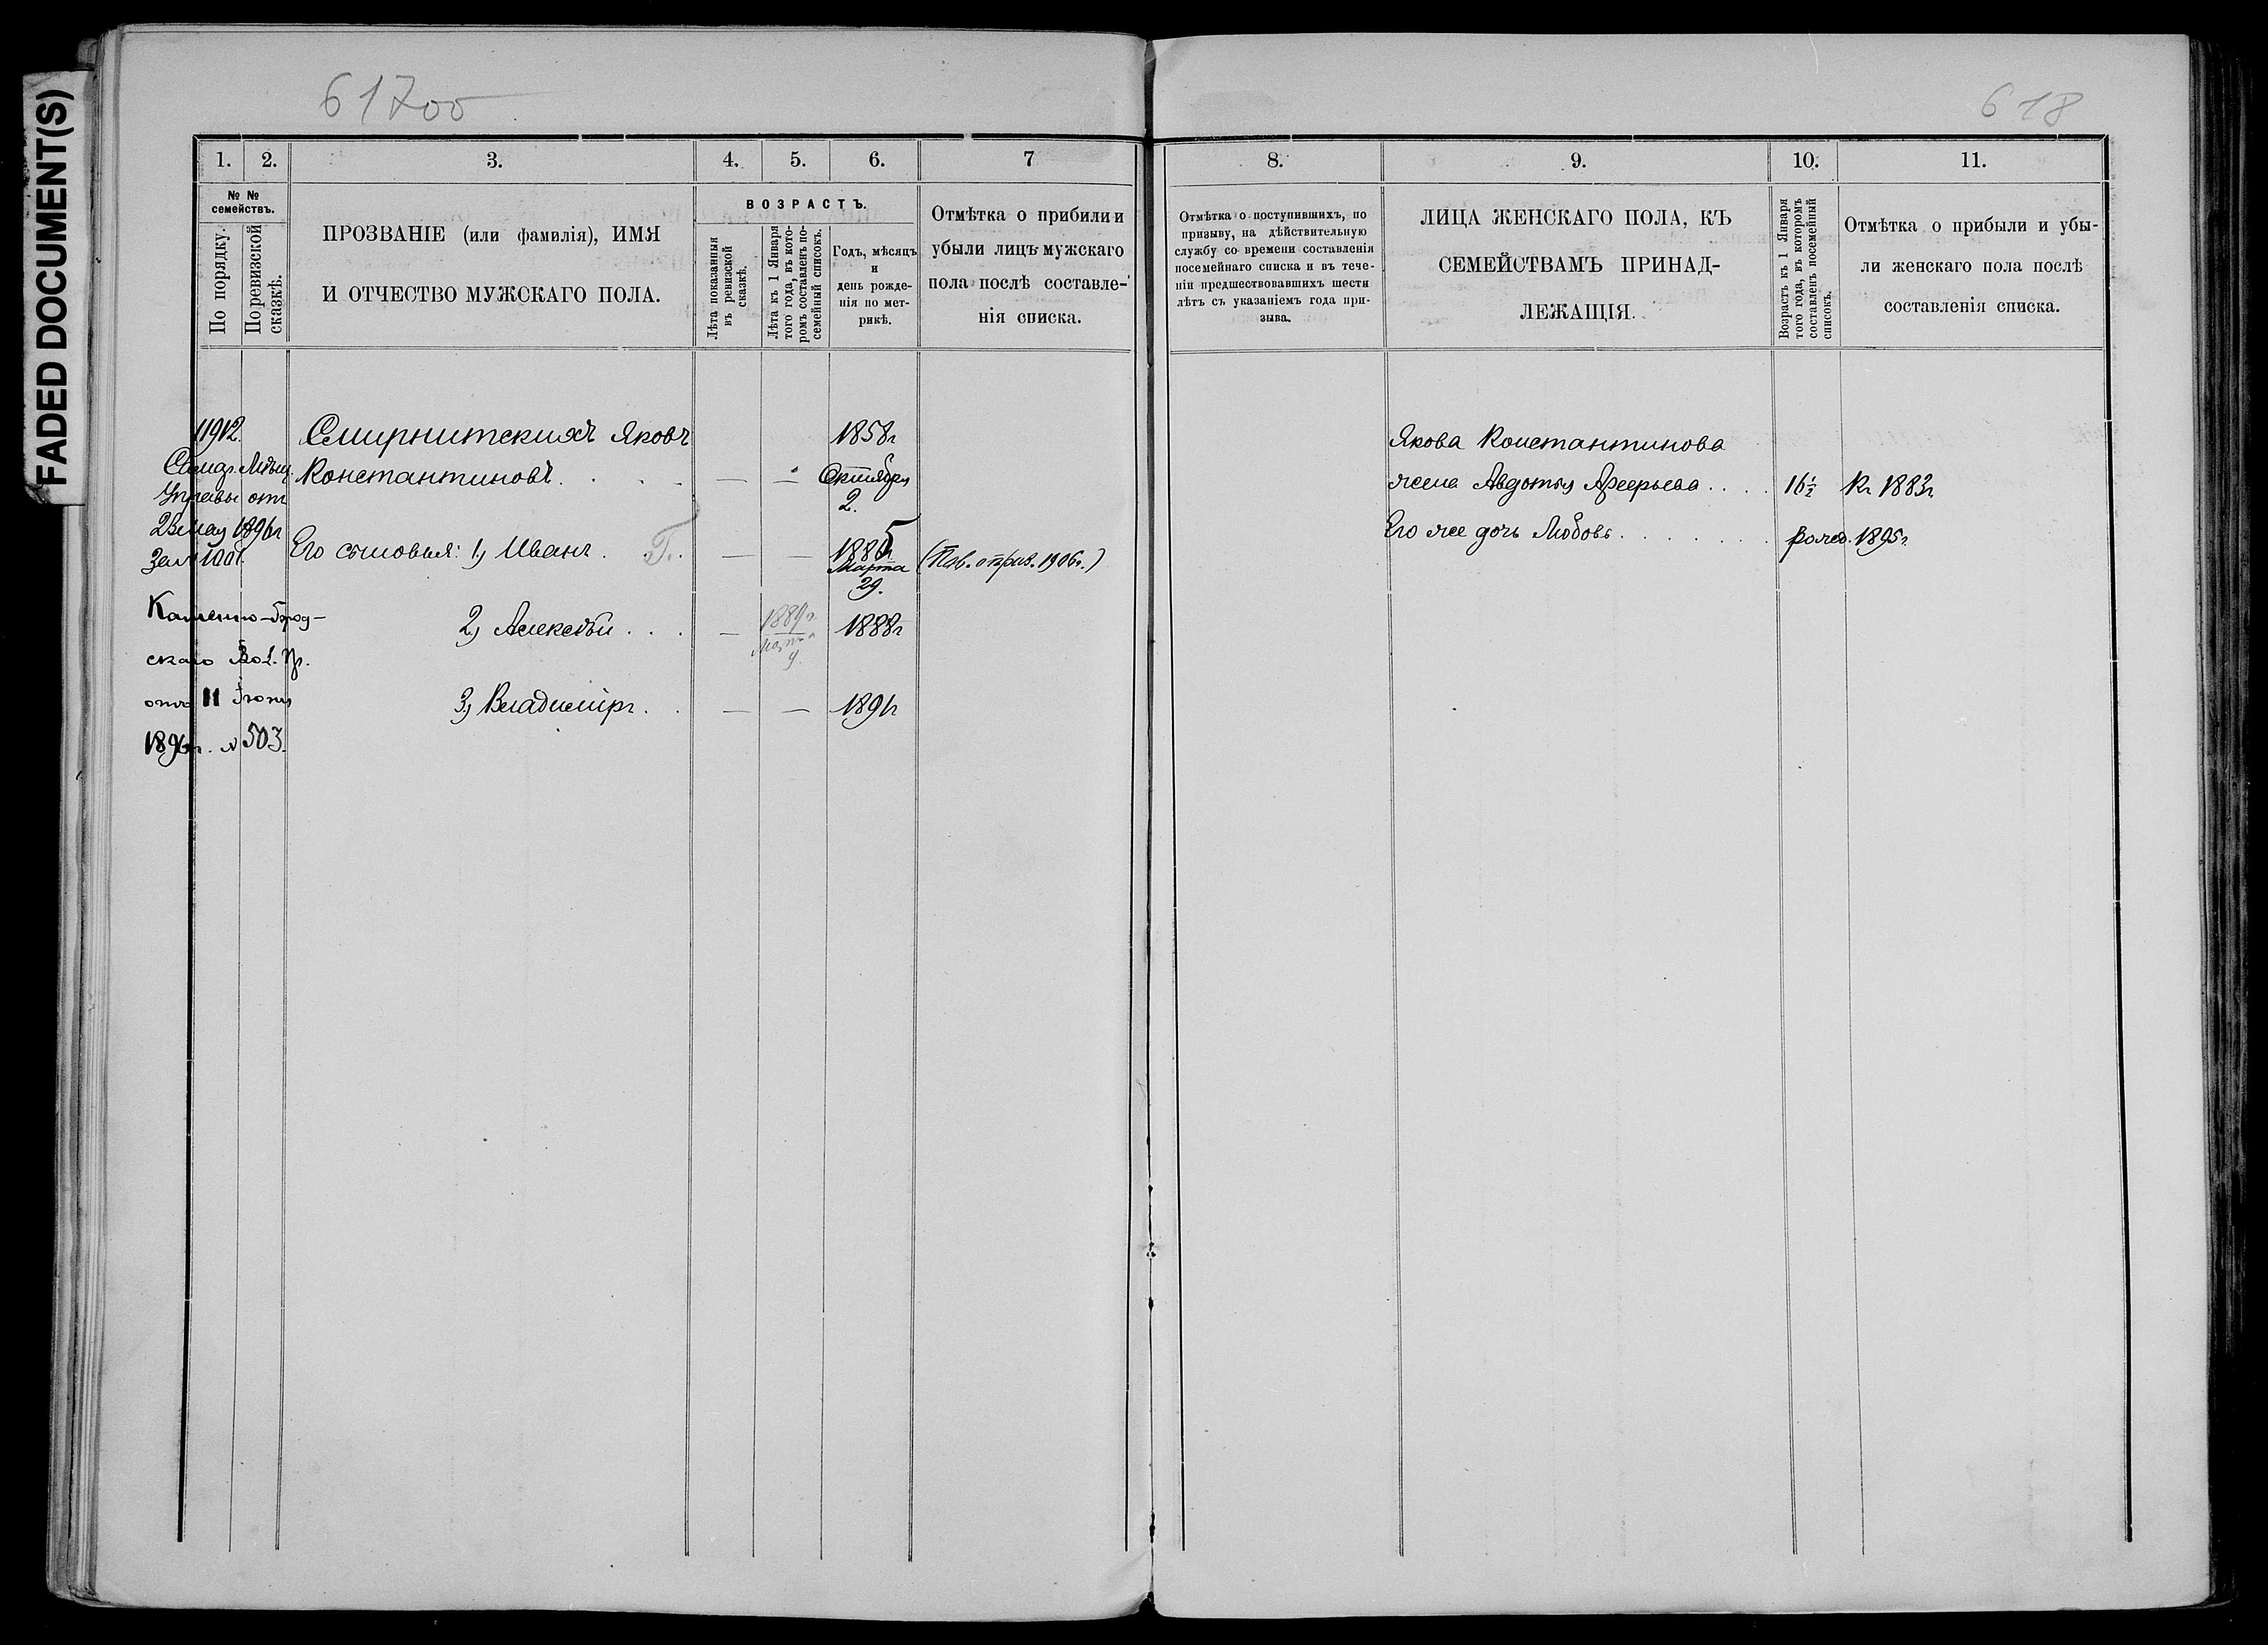 FADED DOCUMENT(S)
617об
618
1. 2. 3. 4. 5. 6. 7
№ № семействъ.
По порядку.
По ревизской сказкѣ.
ПРОЗВАНІЕ (или фамилія), ИМЯ
И ОТЧЕСТВО МУЖСКАГО ПОЛА.
ВОЗРАСТЪ.
Лѣта показанныя
въ ревизской
сказкѣ.
Лѣта къ 1 Января
того года, въ кото-
ромъ составленъ по-
семейный списокъ.
Годъ, мѣсяцъ
и
день рожде-
нія по мет-
рикѣ.
Отмѣтка о прибыли и
убыли лицъ мужскаго
пола послѣ составле-
нія списка.
1191/2.
Смирнитскихъ Яковъ
1858г
Самар. Мѣщ.
Константиновъ . . . . — — Октября
Управы отъ
2.
23 мая 1896г
за №1001.
Его сыновья: 1, Иванъ . Г. — — 1885г
Марта
29.
(Пов. о приз. 1906г.)
Каменно-брод-
2, Алексѣй . . . — 1889г. Марта 9. 1888г
скаго Вол. Пр.
отъ 11 Іюня
3, Владиміръ . . — — 1891г
1896г. № 503.
8. 9. 10. 11.
Отмѣтка о поступившихъ, по
призыву, на дѣйствительную
службу со времени составленія
посемейнаго списка и въ тече-
ніи предшествовавшихъ шести
лѣтъ съ указаніемъ года при-
зыва.
ЛИЦА ЖЕНСКАГО ПОЛА, КЪ
СЕМЕЙСТВАМЪ ПРИНАД-
ЛЕЖАЩІЯ.
Возрастъ къ 1 Января
того года, въ которомъ
составленъ посемейный
списокъ.
Отмѣтка о прибыли и убы-
ли женскаго пола послѣ
составленія списка.
Якова Константинова
жена Авдотья . . . . 16½ Къ 1883г
Его же дочь Любовь . . . . . . . рожд. 1895г.